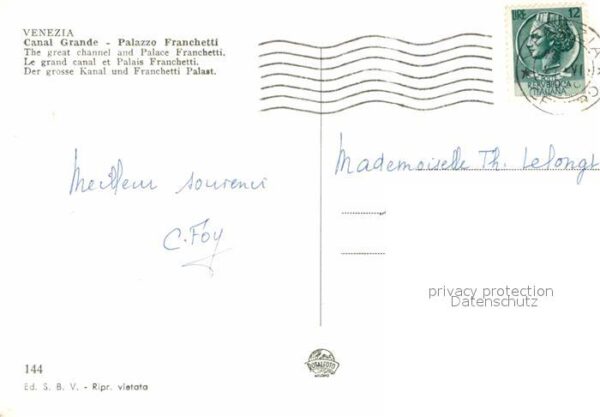 VENEZIA
Canal Grande - Palazzo Franchetti
The great channel and Palace Franchetti.
Le grand canal et Palais Franchetti.
Der grosse Kanal und Franchetti Palast.
LIRE 12
ITALIANA
Mademoiselle Th. Lelongt
Meilleur souvenir
C. Foy
privacy protection
Datenschutz
144
Ed. S. B. V. - Ripr. vietata